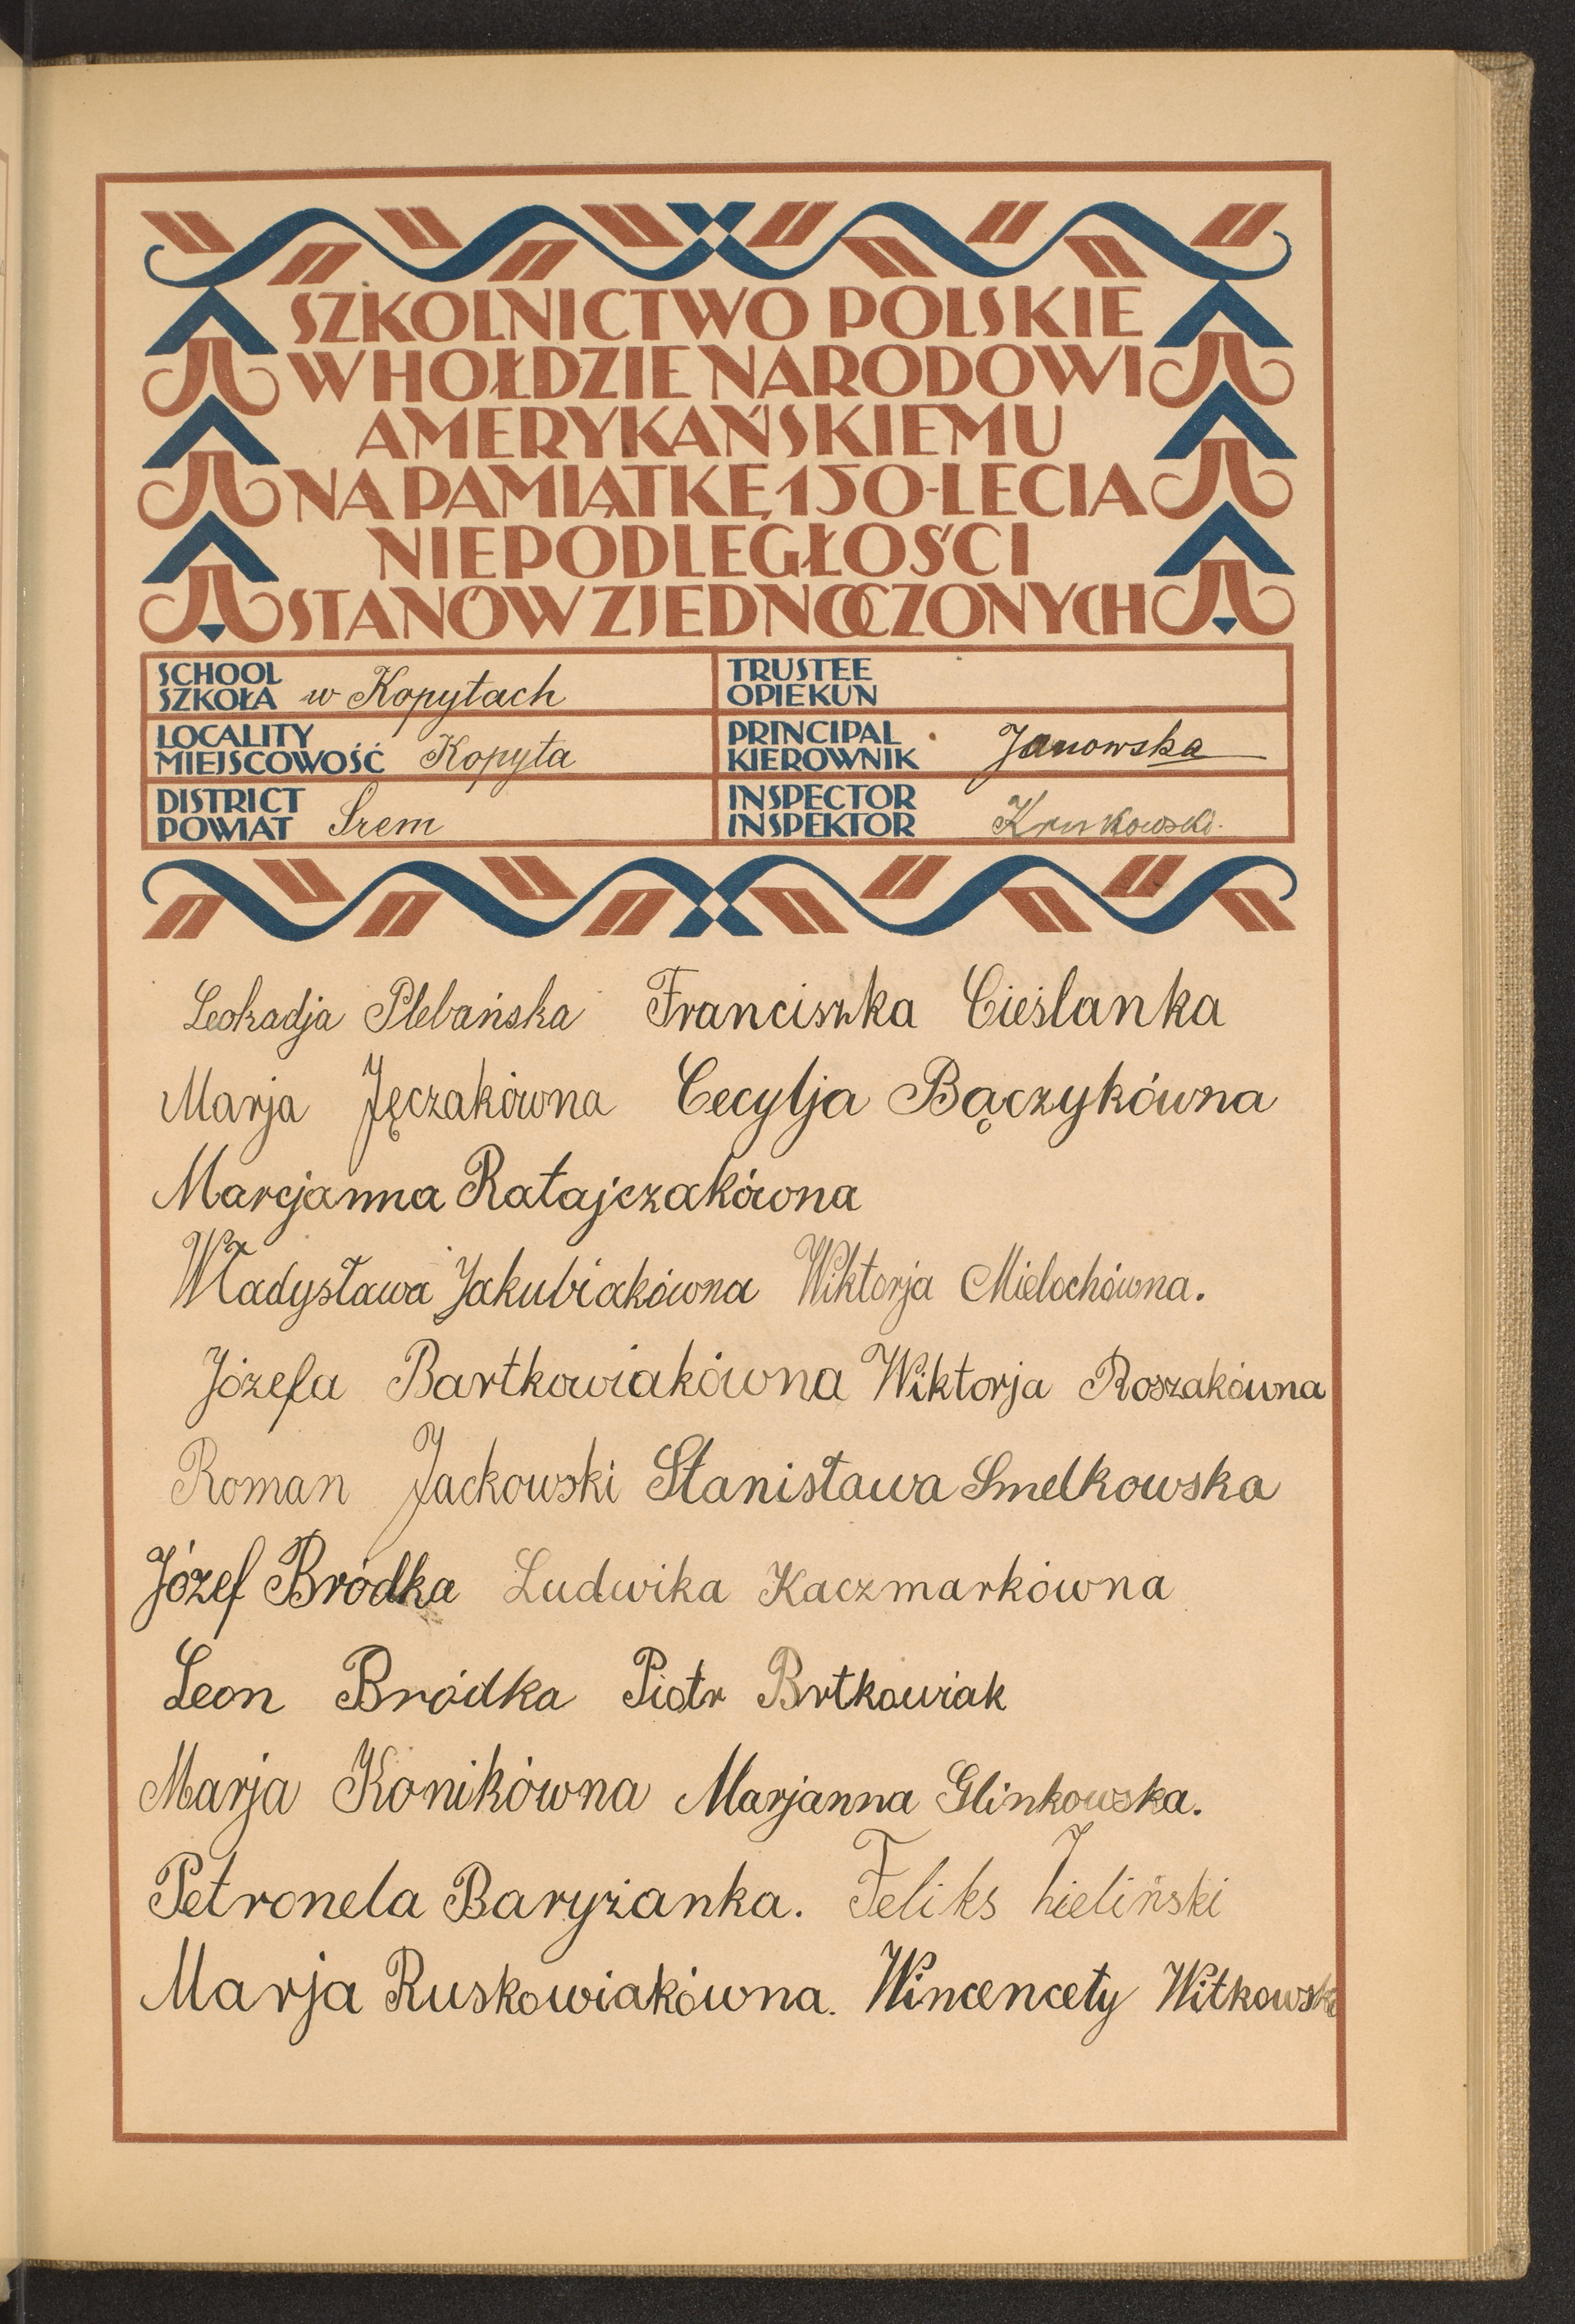 SZKOLNICTWO POLSKIE
W HOŁDZIE NARODOWI
AMERYKAŃSKIEMU
NA PAMIĄTKĘ 150-LECIA
NIEPODLEGŁOŚCI
STANÓW ZJEDNOCZONYCH
SCHOOL
SZKOŁA w Kopytach
TRUSTEE
OPIEKUN
LOCALITY
MIEJSCOWOŚĆ Kopyta
PRINCIPAL
KIEROWNIK Janowska
DISTRICT
POWIAT Śrem
INSPECTOR
INSPEKTOR Krukowski.
Leokadja Plebańska Franciszka Cieślanka
Marja Jęczakówna Cecylja Bączykówna
Marcjanna Ratajczakówna
Władysława Jakubiakówna Wiktorja Mielochówna.
Józefa Bartkowiakówna Wiktorja Roszakówna
Roman Jackowski Stanisława Smelkowska
Józef Bródka Ludwika Kaczmarkówna
Leon Bródka Piotr Brtkowiak
Marja Konikówna Marjanna Glinkowska.
Petronela Baryżanka. Feliks Zieliński
Marja Ruskowiakówna. Wincencety Witkowski